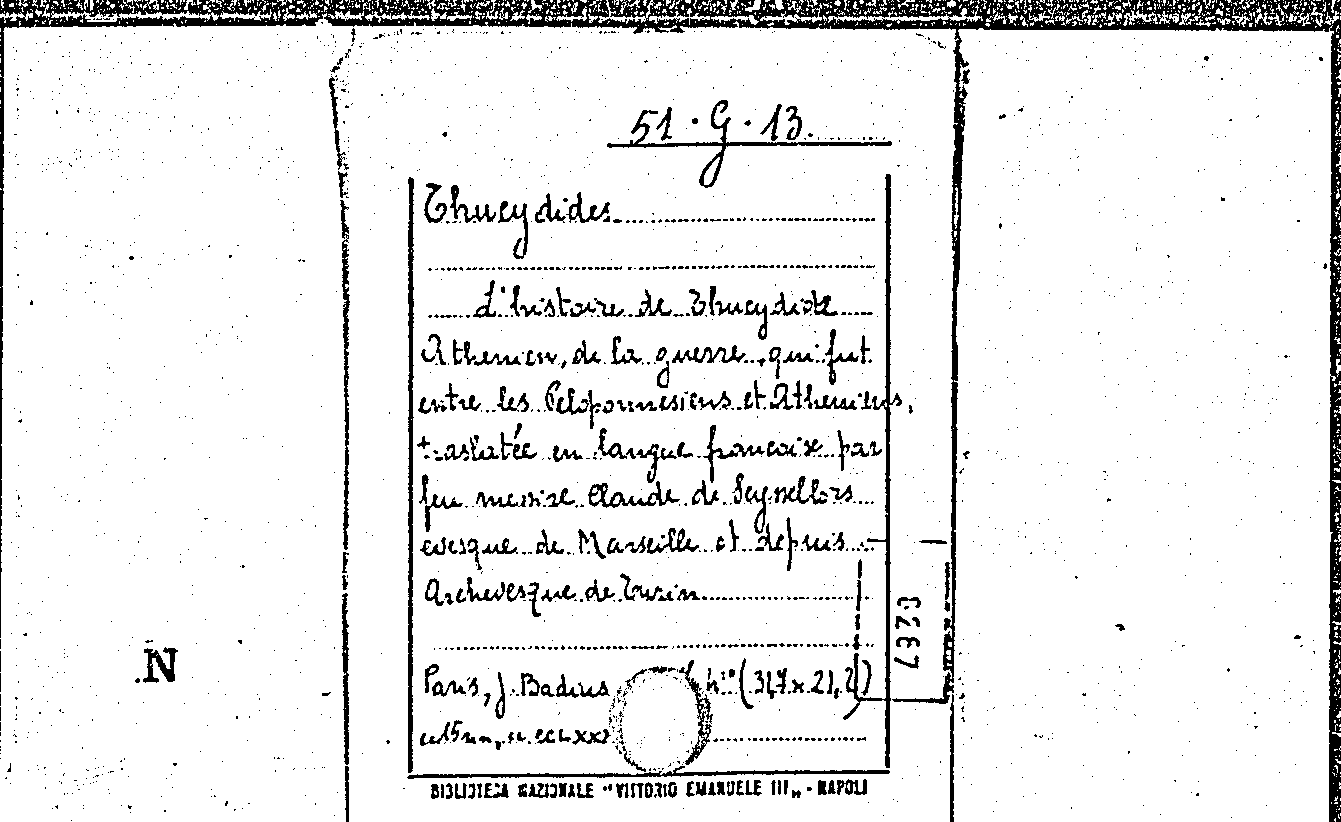 51 · G · 13.
Thucydides
L'histoire de Thucydide
Athenien, de la guerre, qui fut
entre les Peloponnesiens et Atheniens,
traslatée en langue francoise par
feu messire Claude de Seyssellors
evesque de Marseille et depuis
Archevesque de Turin
0297
.N
Paris, J. Badius (31,7 x 21,2)
BIBLIOTECA NAZIONALE "VITTORIO EMANUELE III„ - NAPOLI